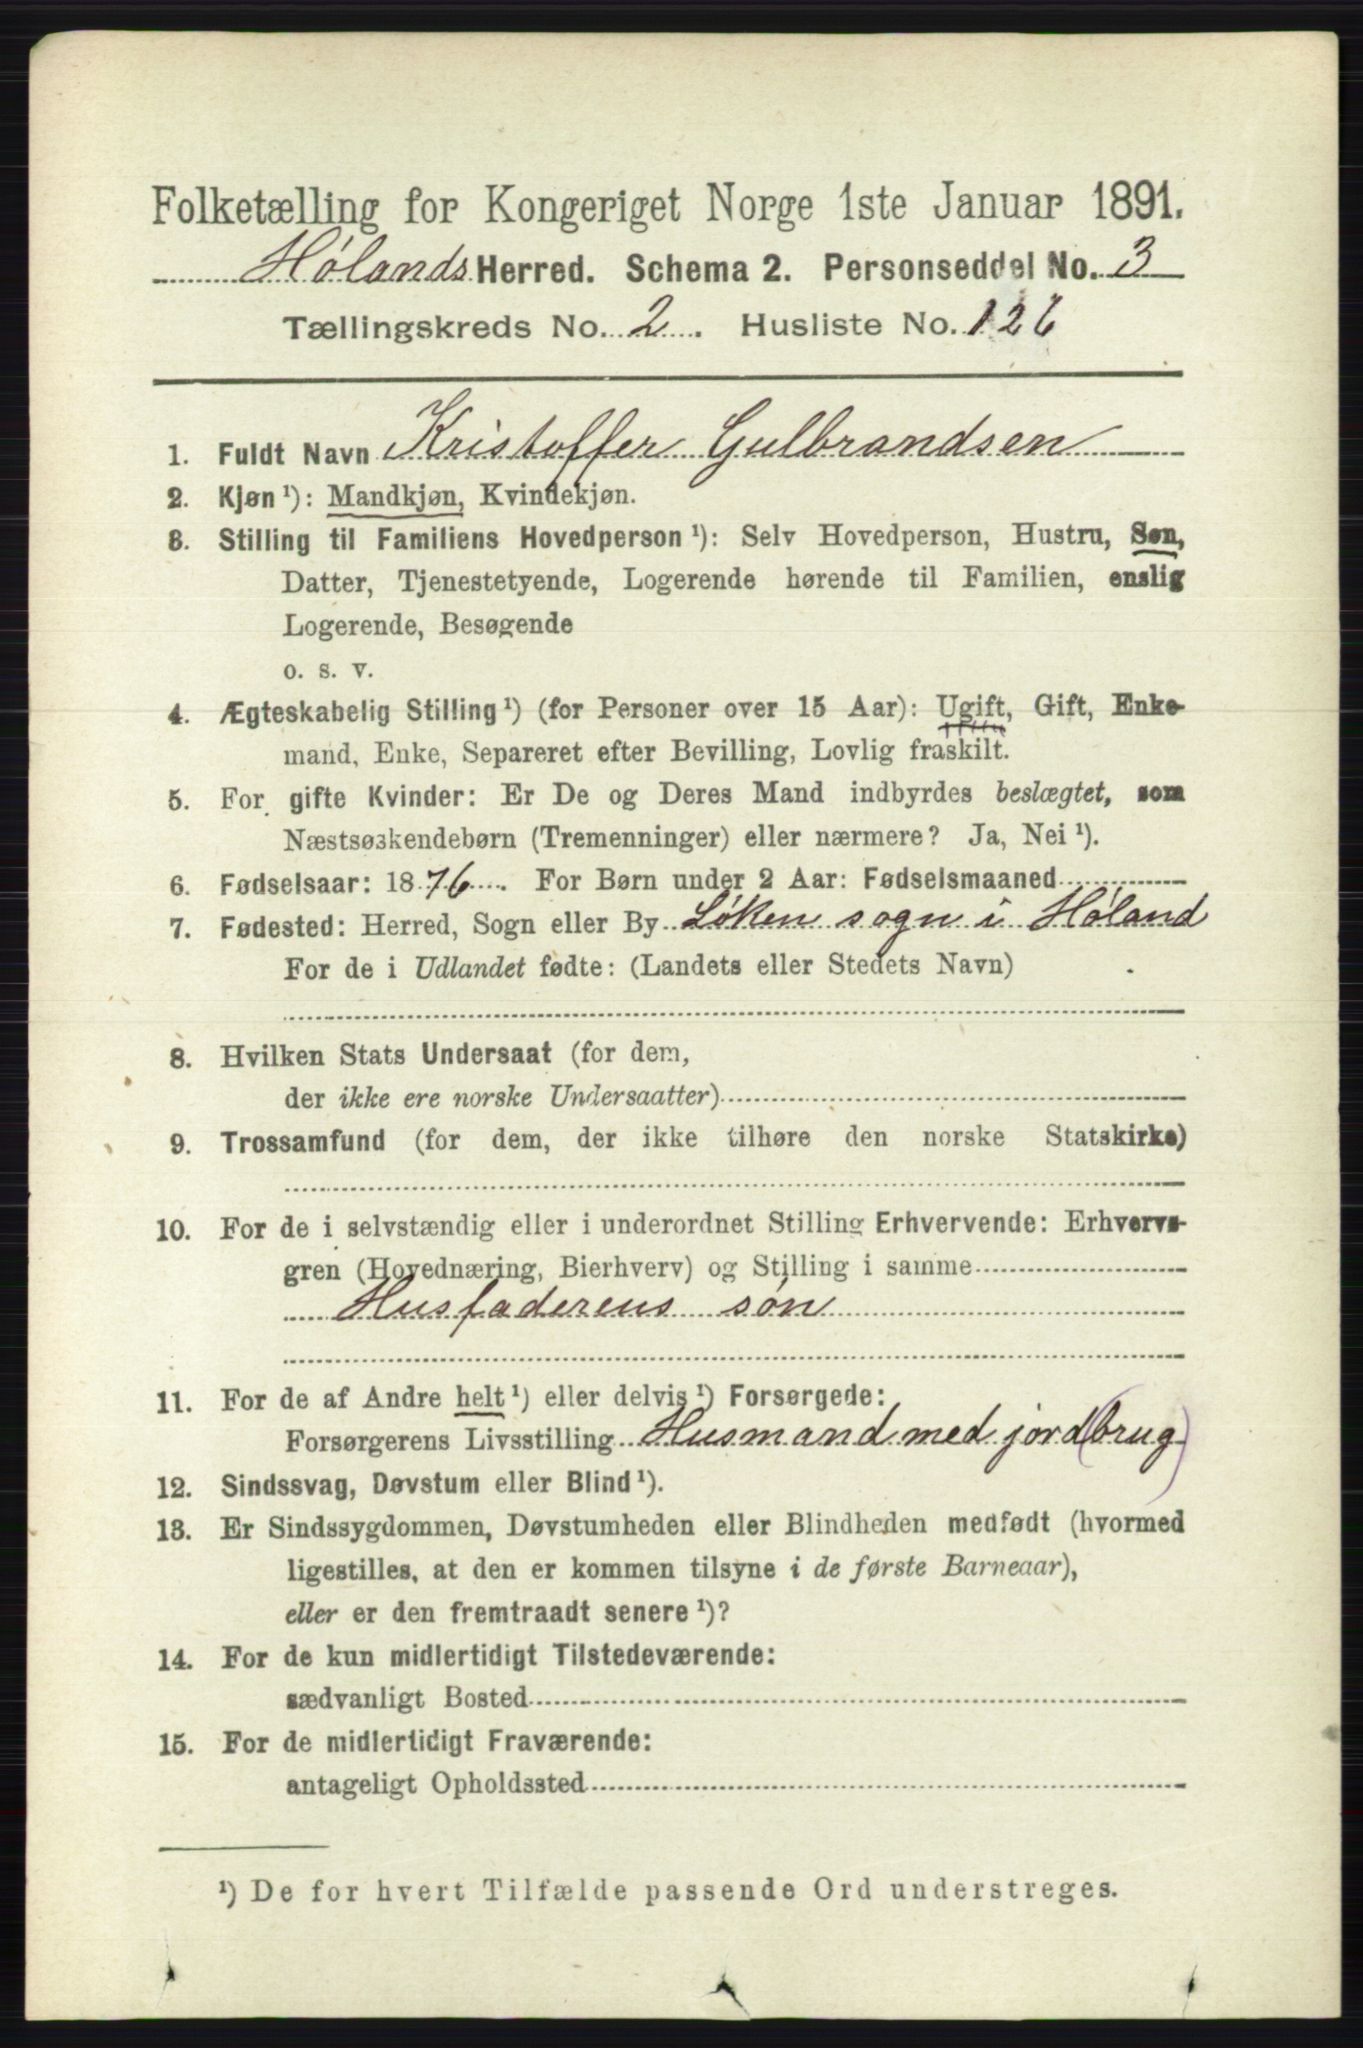 Folketælling for Kongeriget Norge 1ste Januar 1891.
Hølands Herred. Schema 2. Personseddel No. 3
Tællingskreds No. 2. Husliste No. 126
1. Fuldt Navn Kristoffer Gulbrandsen
2. Kjøn ¹): Mandkjøn, Kvindekjøn.
3. Stilling til Familiens Hovedperson ¹): Selv Hovedperson, Hustru, Søn,
Datter, Tjenestetyende, Logerende hørende til Familien, enslig
Logerende, Besøgende
o. s. v.
4. Ægteskabelig Stilling ¹) (for Personer over 15 Aar): Ugift, Gift, Enke-
mand, Enke, Separeret efter Bevilling, Lovlig fraskilt.
5. For gifte Kvinder: Er De og Deres Mand indbyrdes beslægtet, som
Næstsøskendebørn (Tremenninger) eller nærmere? Ja, Nei ¹).
6. Fødselsaar: 1876. For Børn under 2 Aar: Fødselsmaaned
7. Fødested: Herred, Sogn eller By Løken sogn i Høland
For de i Udlandet fødte: (Landets eller Stedets Navn)
8. Hvilken Stats Undersaat (for dem,
der ikke ere norske Undersaatter)
9. Trossamfund (for dem, der ikke tilhøre den norske Statskirke)
10. For de i selvstændig eller i underordnet Stilling Erhvervende: Erhvervs-
gren (Hovednæring, Bierhverv) og Stilling i samme
Husfaderens søn
11. For de af Andre helt ¹) eller delvis ¹) Forsørgede:
Forsørgerens Livsstilling Husmand med jord(brug)
12. Sindssvag, Døvstum eller Blind ¹).
13. Er Sindssygdommen, Døvstumheden eller Blindheden medfødt (hvormed
ligestilles, at den er kommen tilsyne i de første Barneaar),
eller er den fremtraadt senere ¹)?
14. For de kun midlertidigt Tilstedeværende:
sædvanligt Bosted
15. For de midlertidigt Fraværende:
antageligt Opholdssted
¹) De for hvert Tilfælde passende Ord understreges.